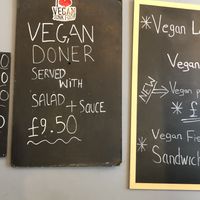 I ❤ VEGAN JUNK FOOD
VEGAN
DONER
SERVED
WITH
SALAD + SAUCE
£9.50
*Vegan L
Vegan
NEW
Vegan p
* £
* Vegan Fi
Sandwich